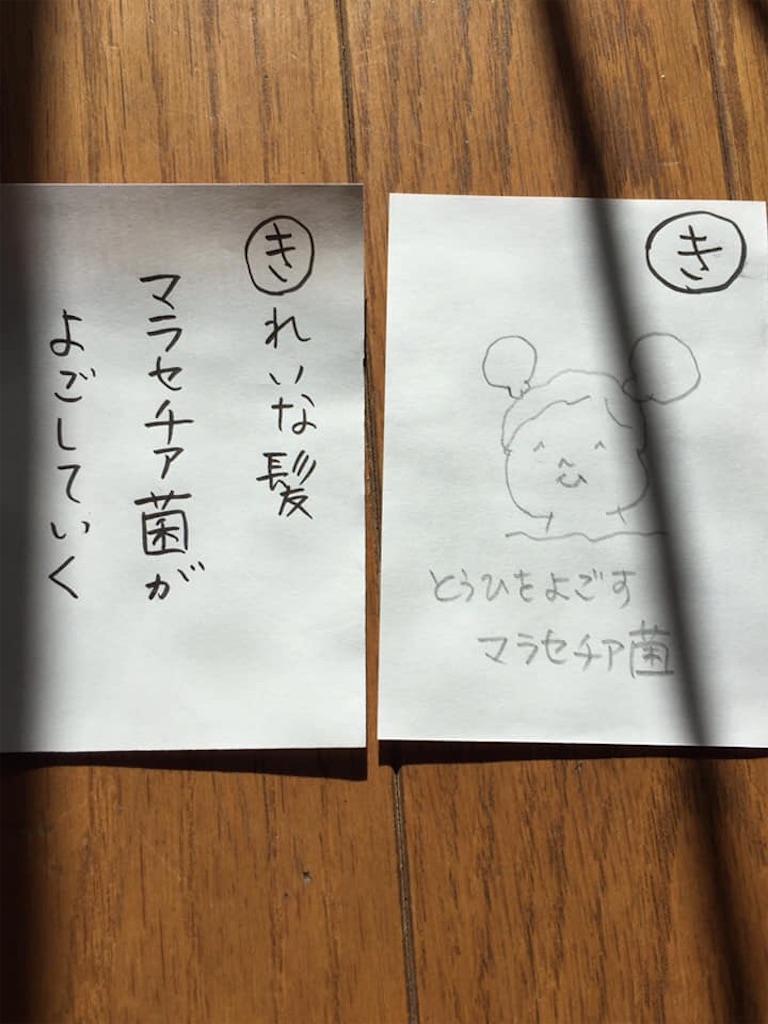 きれいな髪
マラセチア菌が
よごしていく
き
とうひをよごす
マラセチア菌